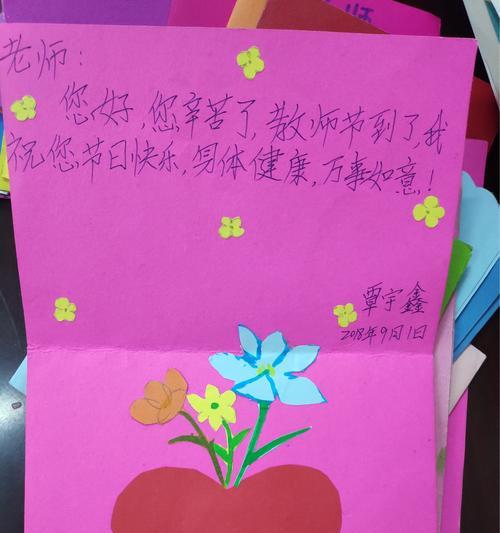 师
老师：
您好，您辛苦了，教师节到了，我
祝您节日快乐，身体健康，万事如意！
覃宇鑫
2018年9月1日